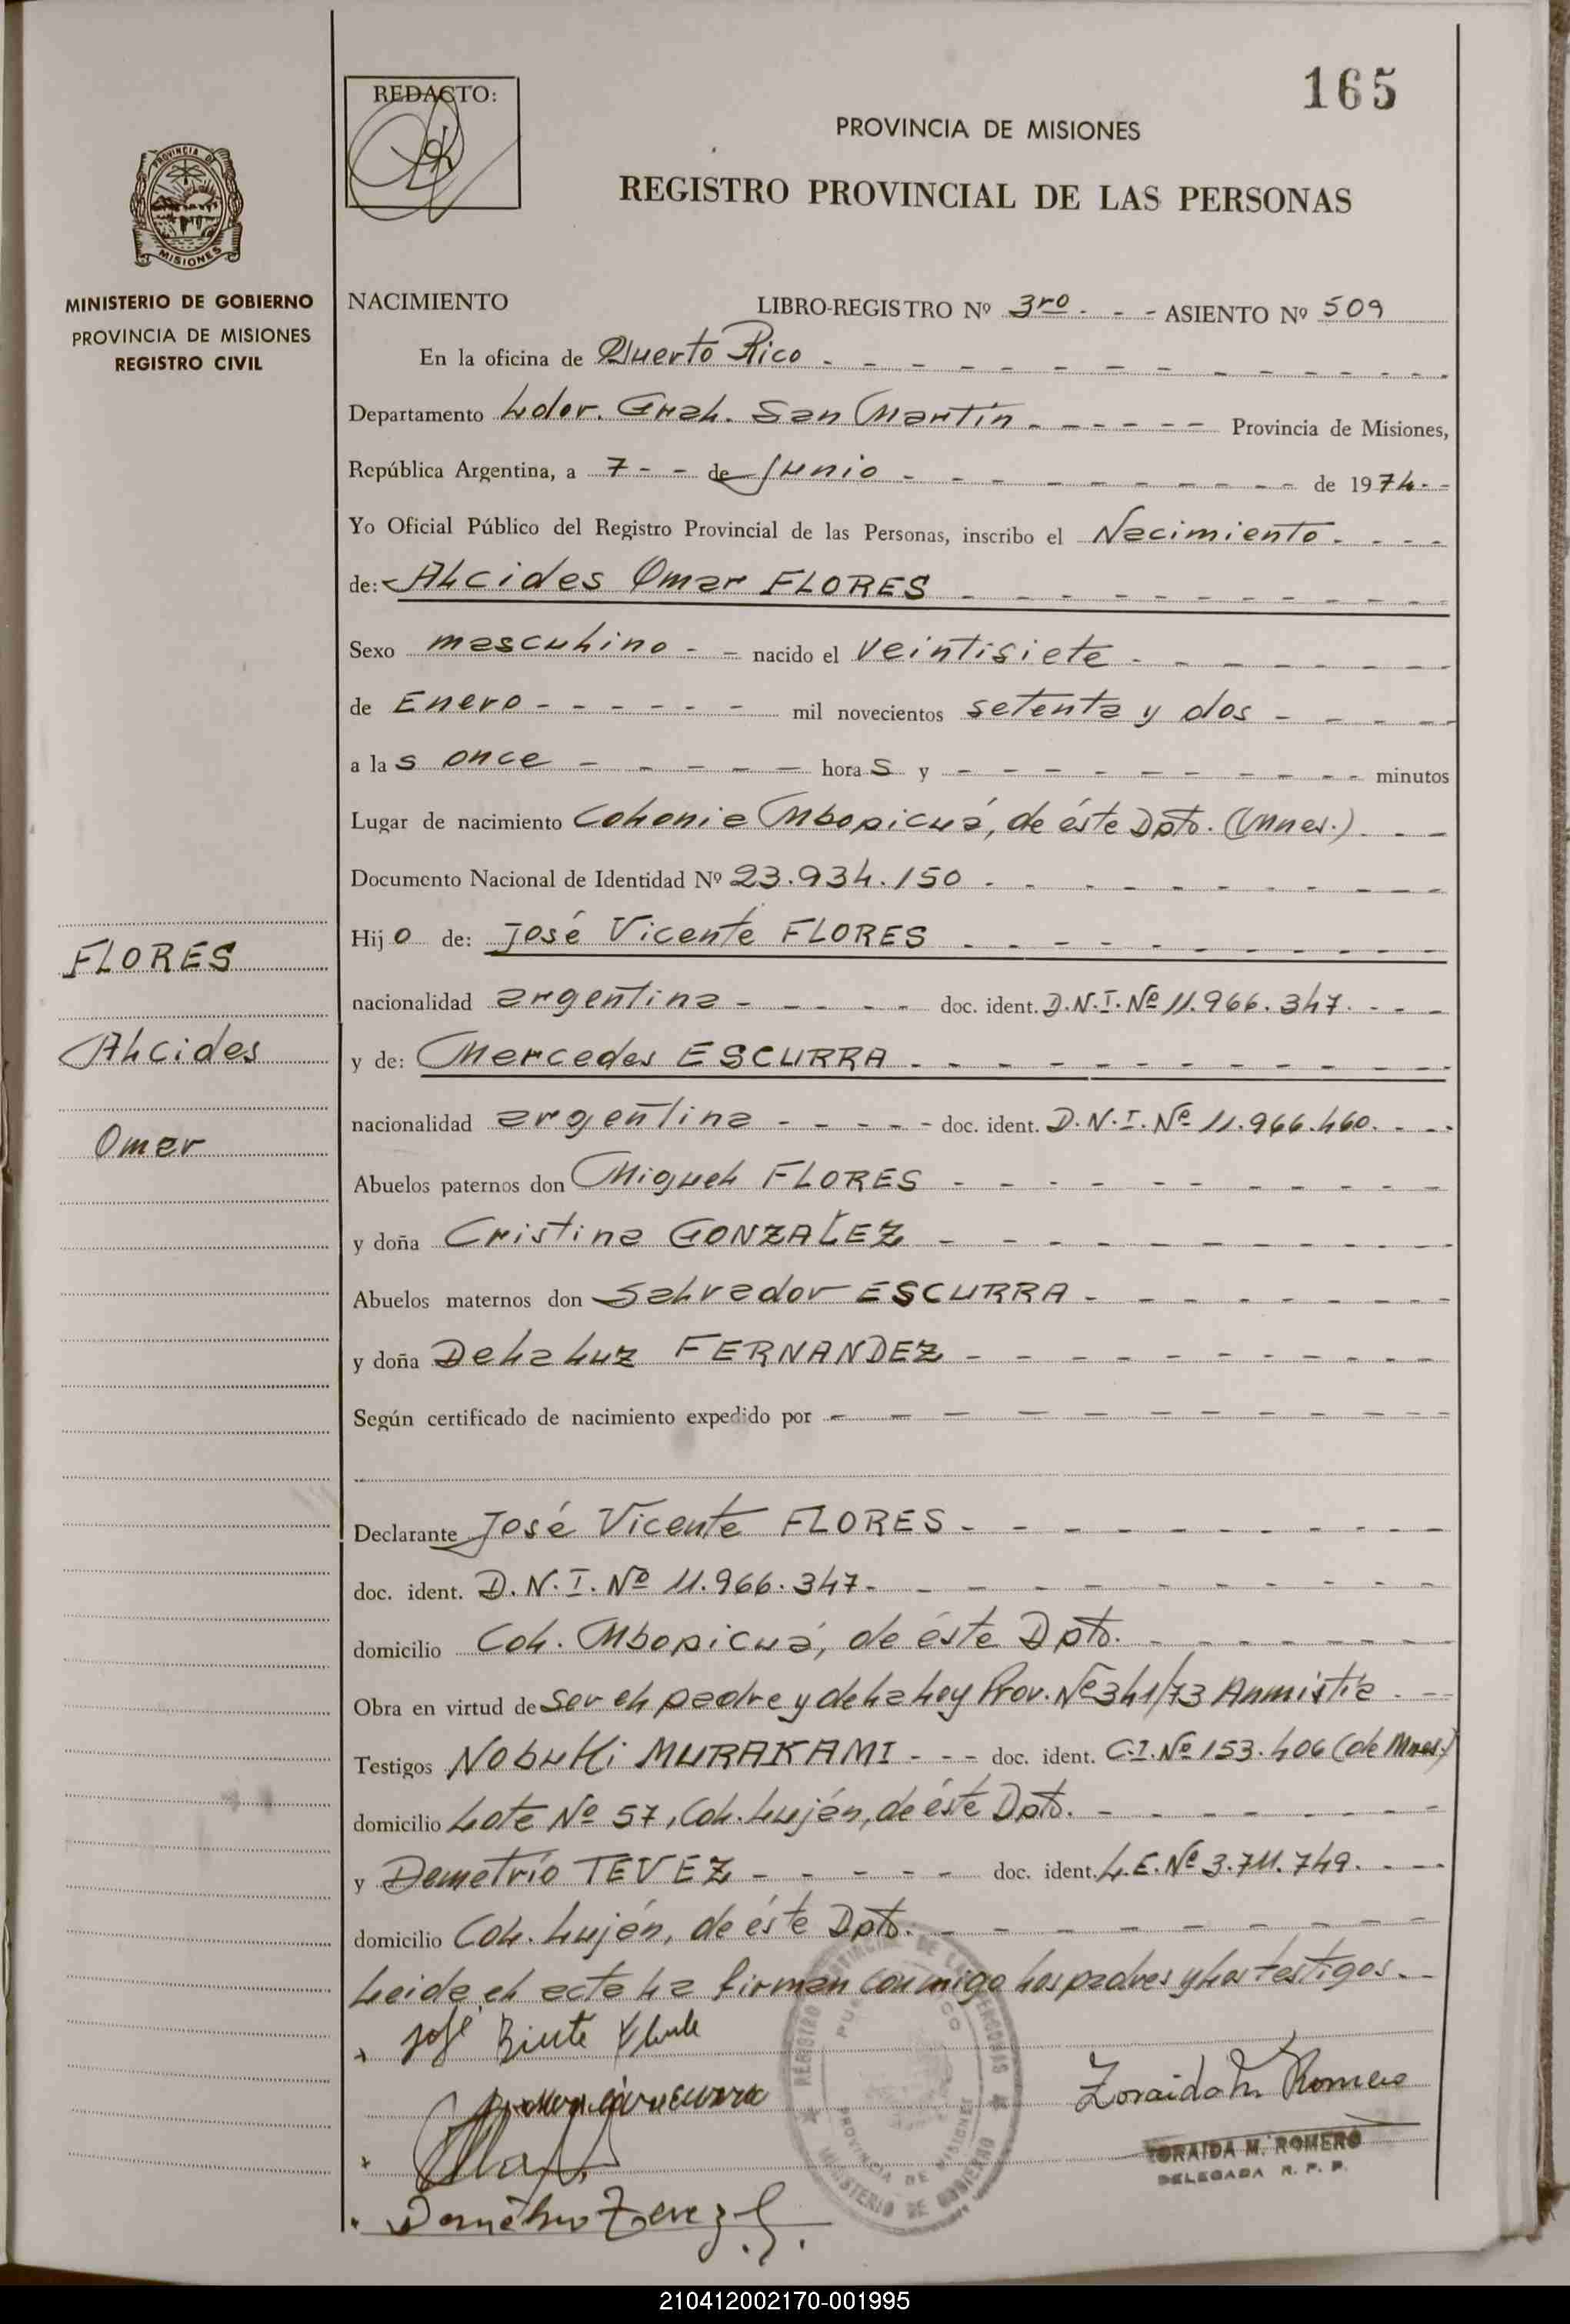 165
REDACTO:
PROVINCIA DE MISIONES
REGISTRO PROVINCIAL DE LAS PERSONAS
PROVINCIA DE
MISIONES
MINISTERIO DE GOBIERNO
PROVINCIA DE MISIONES
REGISTRO CIVIL
NACIMIENTO LIBRO-REGISTRO Nº 3ro. - - ASIENTO Nº 509
En la oficina de Puerto Rico
Departamento Ldor. Gral. San Martín Provincia de Misiones,
República Argentina, a 7 - - de Junio de 1974.-
Yo Oficial Público del Registro Provincial de las Personas, inscribo el Nacimiento
de: Alcides Omar FLORES
Sexo masculino nacido el veintisiete
de Enero mil novecientos setenta y dos
a las once horas y minutos
Lugar de nacimiento Colonia Mbopicuá, de éste Dpto. (Mnes.)
Documento Nacional de Identidad Nº 23.934.150
Hijo de: José Vicente FLORES
nacionalidad argentina doc. ident. D.N.I. Nº 11.966.347.
y de: Mercedes ESCURRA
nacionalidad argentina doc. ident. D.N.I. Nº 11.966.460.
Abuelos paternos don Miguel FLORES
y doña Cristina GONZALEZ
Abuelos maternos don Salvador ESCURRA
y doña De la Luz FERNANDEZ
Según certificado de nacimiento expedido por
Declarante José Vicente FLORES
doc. ident. D.N.I. Nº 11.966.347.
domicilio Col. Mbopicuá, de éste Dpto.
Obra en virtud de ser el padre y de la ley Prov. Nº 341/73 Anmistia
Testigos Nobuki MURAKAMI doc. ident. C.I. Nº 153.406 (de Mnes.)
domicilio Lote Nº 57, Col. Luján, de éste Dpto.
y Demetrio TEVEZ doc. ident. L.E. Nº 3.711.749.
domicilio Col. Luján, de éste Dpto.
Leida el acta la firman conmigo los padres y los testigos.
FLORES
Alcides
Omar
José
Zoraida M. Romero
ZORAIDA M. ROMERO
DELEGADA R. P. P.
Demetrio Tevez
REGISTRO PROVINCIAL DE LAS PERSONAS
PUERTO RICO
PROVINCIA DE MISIONES
MINISTERIO DE GOBIERNO
210412002170-001995